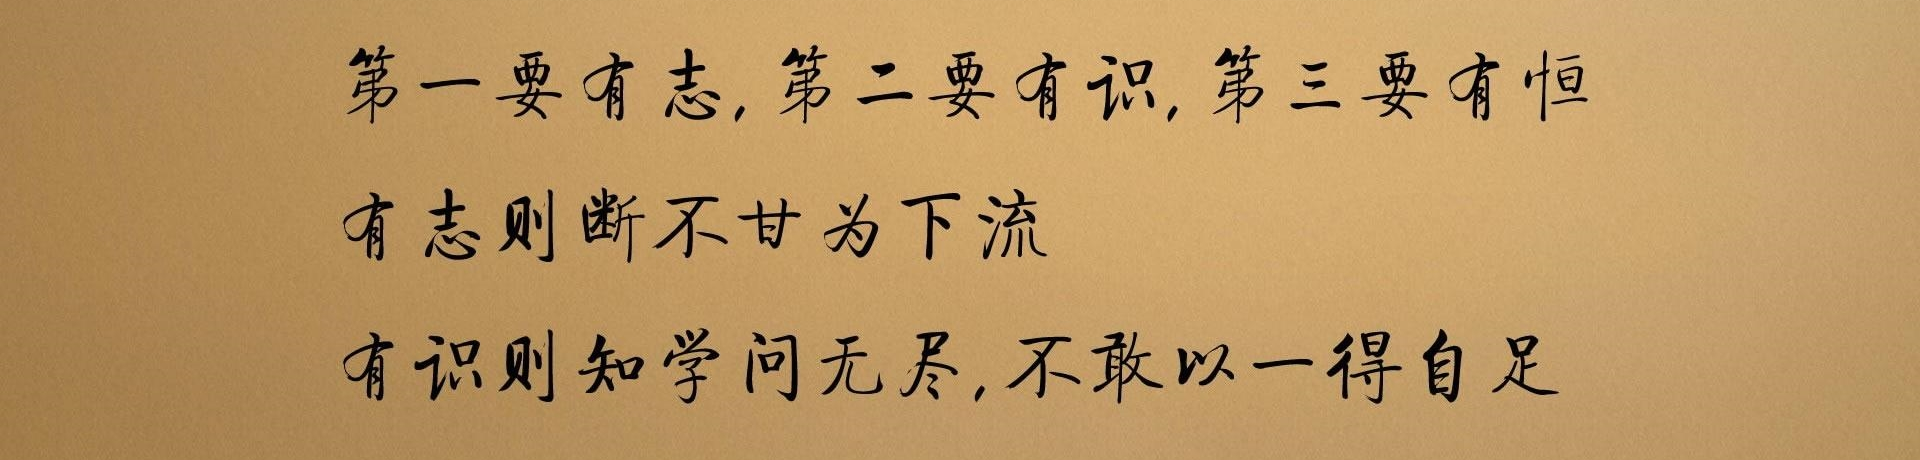 第一要有志,第二要有识,第三要有恒
有志则断不甘为下流
有识则知学问无尽,不敢以一得自足